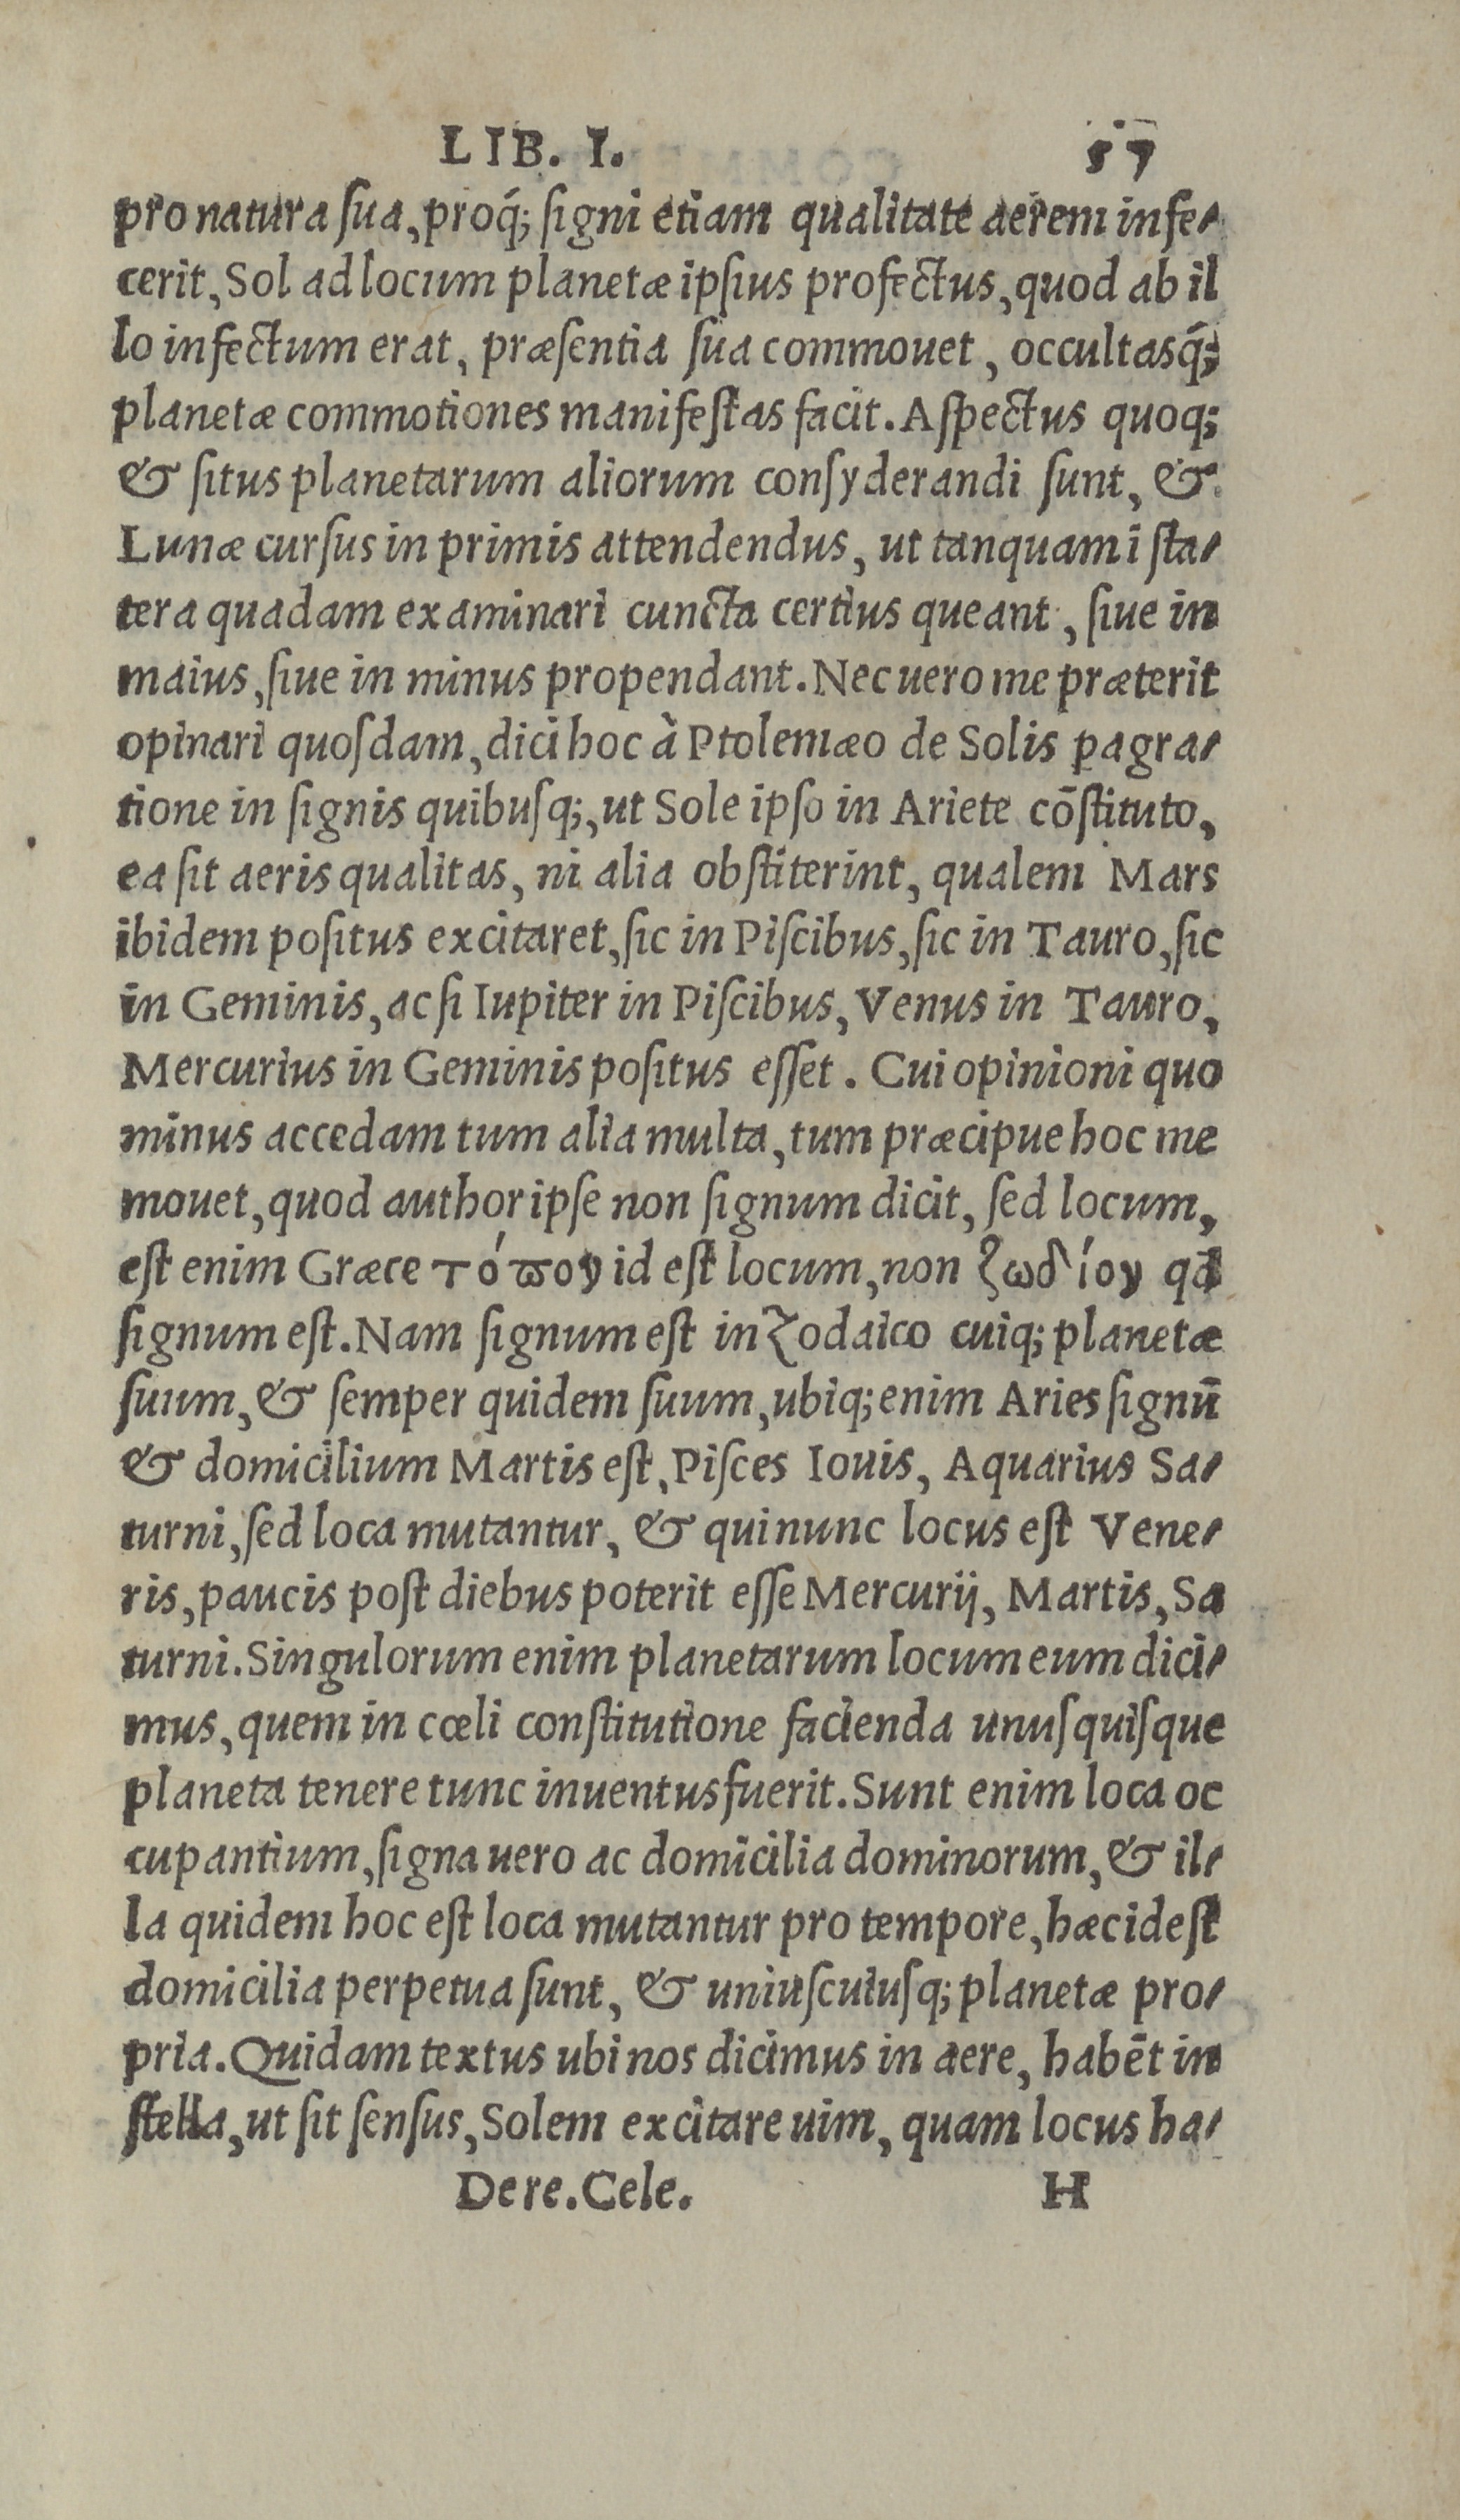 LIB. I. 57
pro natura sua, proq́; signi etiam qualitate aerem infe-
cerit, Sol ad locum planetæ ipsius profectus, quod ab il
lo infectum erat, præsentia sua commouet, occultasq́;
planetæ commotiones manifestas facit. Aspectus quoq;
& situs planetarum aliorum consyderandi sunt, &
Lunæ cursus in primis attendendus, ut tanquam ĩ sta-
tera quadam examinari cuncta certius queant, siue in
maius, siue in minus propendant. Nec uero me præterit
opinari quosdam, dici hoc à Ptolemæo de Solis pagra-
tione in signis quibusq;, ut Sole ipso in Ariete cōstituto,
ea sit aeris qualitas, ni alia obstiterint, qualem Mars
ibidem positus excitaret, sic in Piscibus, sic in Tauro, sic
in Geminis, ac si Iupiter in Piscibus, Venus in Tauro,
Mercurius in Geminis positus esset. Cui opinioni quo
minus accedam tum alia multa, tum præcipue hoc me
mouet, quod author ipse non signum dicit, sed locum,
est enim Græce τόπου id est locum, non ζωδίου qd
signum est. Nam signum est in Zodaico cuiq; planetæ
suum, & semper quidem suum, ubiq; enim Aries signū
& domicilium Martis est, Pisces Iouis, Aquarius Sa-
turni, sed loca mutantur, & qui nunc locus est Vene-
ris, paucis post diebus poterit esse Mercurij, Martis, Sa
turni. Singulorum enim planetarum locum eum dici-
mus, quem in cœli constitutione facienda unusquisque
planeta tenere tunc inuentus fuerit. Sunt enim loca oc
cupantium, signa uero ac domicilia dominorum, & il-
la quidem hoc est loca mutantur pro tempore, hæc id est
domicilia perpetua sunt, & uniuscuiusq; planetæ pro-
pria. Quidam textus ubi nos dicimus in aere, habēt in
stella, ut sit sensus, Solem excitare uim, quam locus ha-
De re. Cele. H